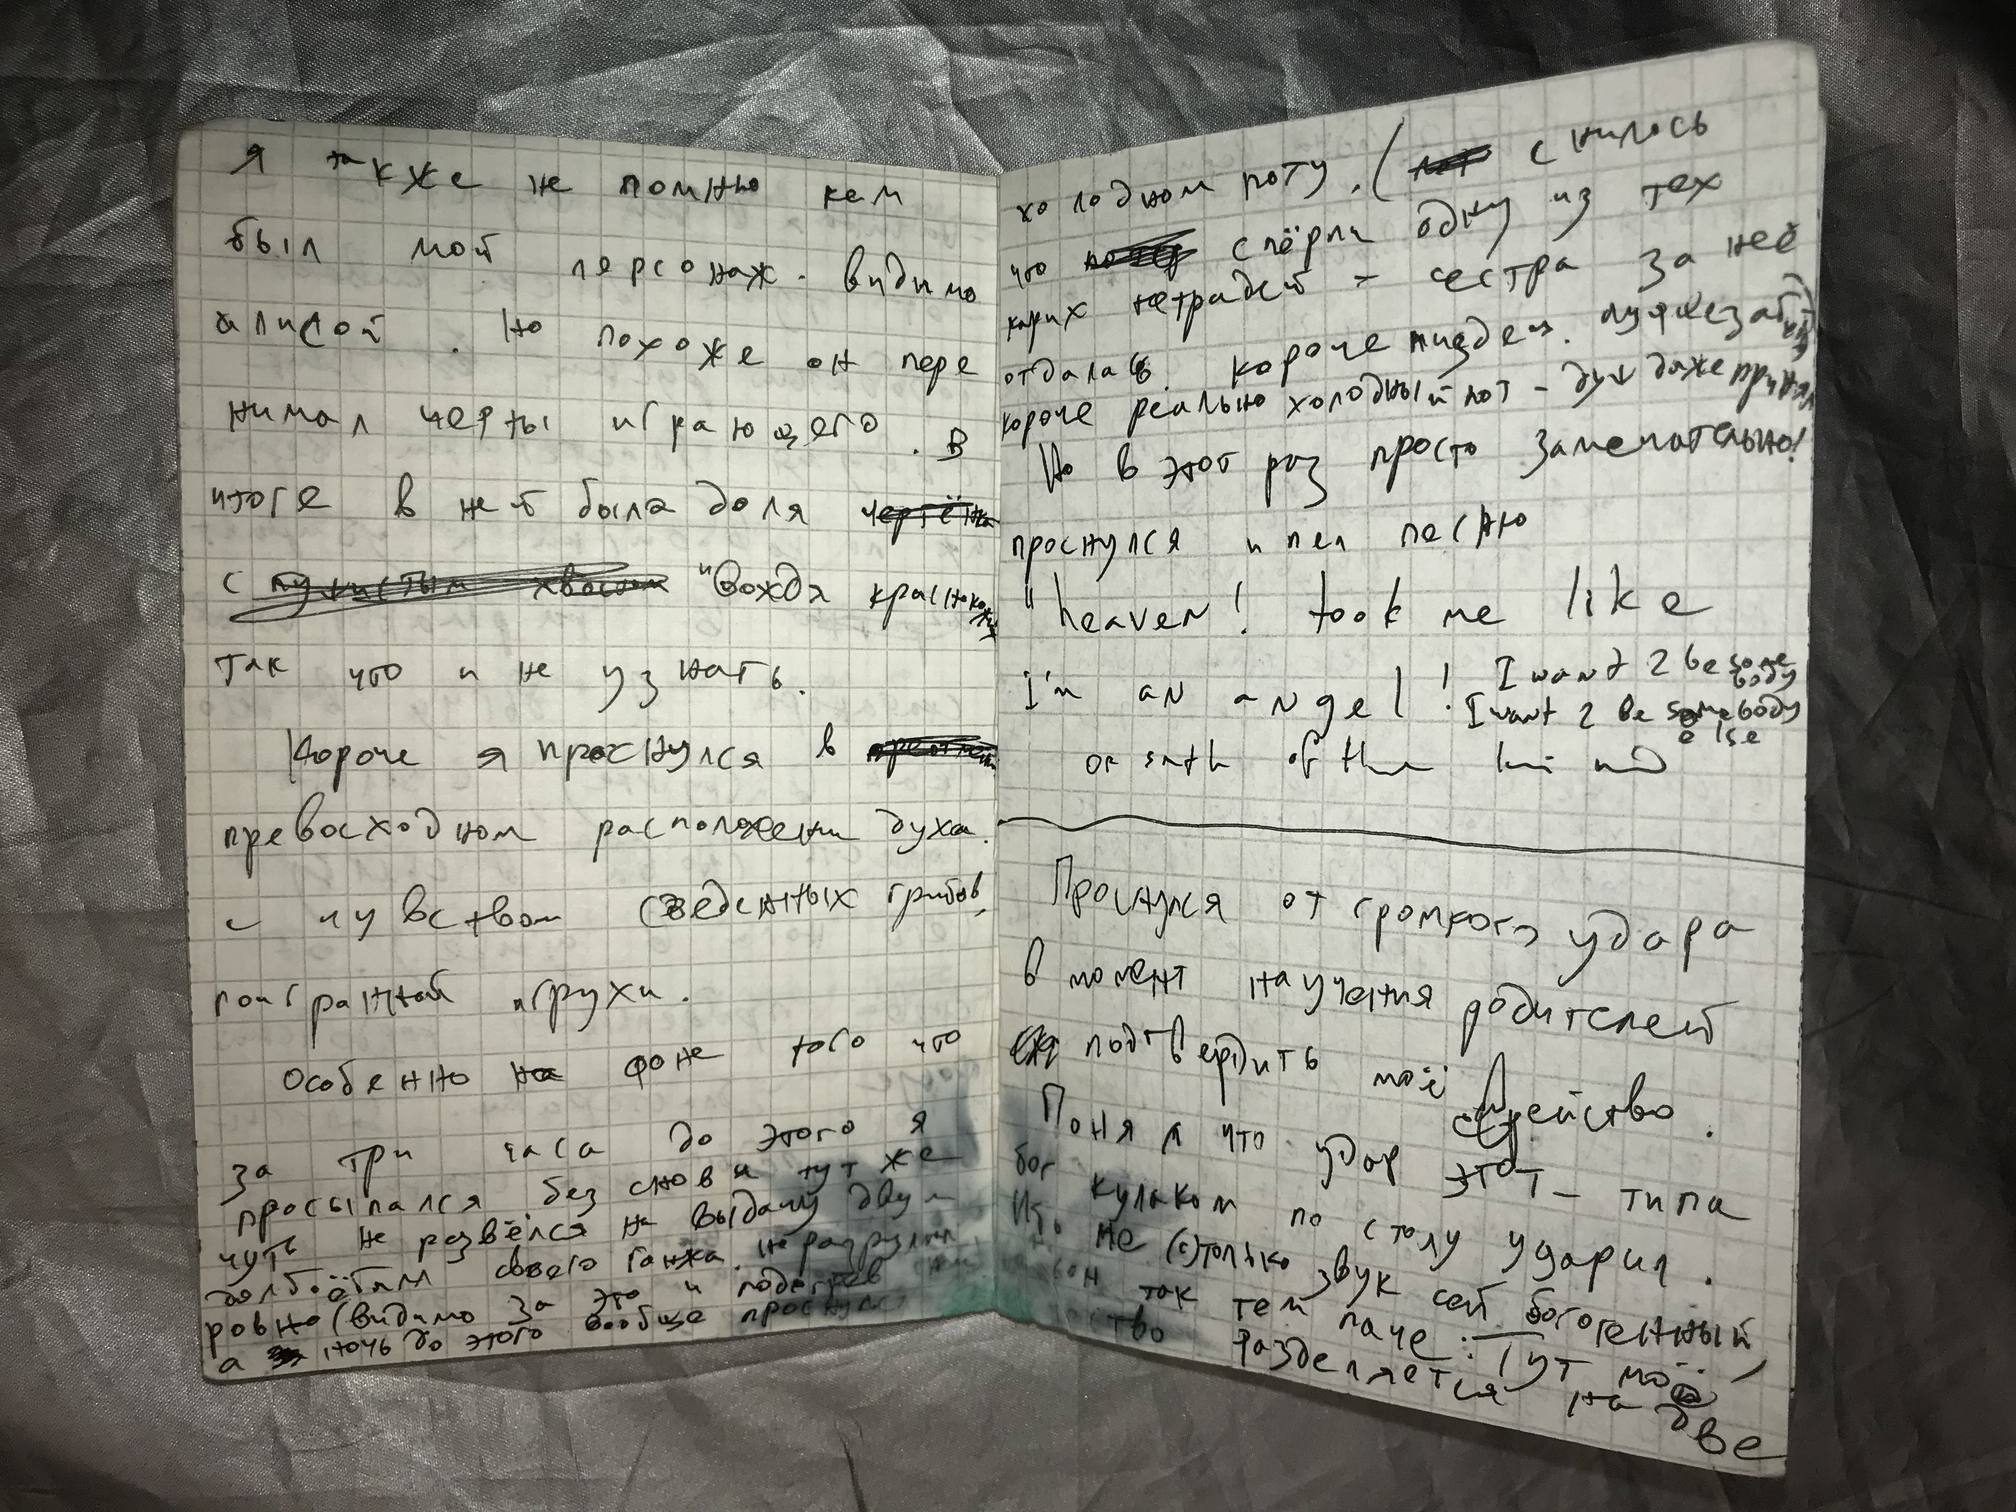 я также не помню кем
был мой персонаж. видимо
алисой. Но похоже он пере
нимал черты играющего. В
итоге в ней была доля чертёнка
с пушистым хвостом "вождя краснокожих
так что и не узнать.
Короче я проснулся в
превосходном расположени духа.
с чувством съеденных грибов,
поигранной игрухи.
особенно на фоне того что
за три часа до этого я
просыпался без снов и тут же
чуть не развёлся на выдачу двум
долбоёбам своего ганжа.
ровно (видимо за это и подогрев
а ночь до этого вообще проснулс
холодном поту. ( снилось
что спёрли одну из тех
каких тетрадей - сестра за неё
отдалась. короче пиздец.
короче реально холодный пот - душ даже принял
Но в этот раз просто замечательно!
проснулся и пел песню
"heaven! took me like
I'm an angel! I want 2 be somebody
I want 2 be somebody else
or smth of the kind
Проснулся от громкого удара
в момент научения родителей
подтвердить моё
Понял что удар этот - типа
бог кулаком по столу ударил.
Ибо не (с)только звук сей богогенный,
так тем паче: Тут моё
ство разделяется на две